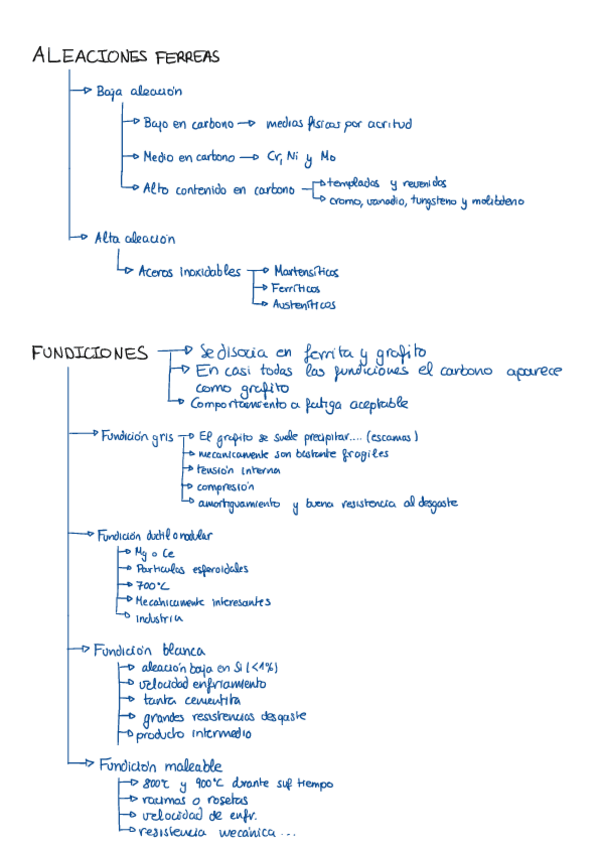 ALEACIONES FERREAS
Baja aleación
Bajo en carbono → medias físicas por acritud
Medio en carbono → Cr, Ni y Mo
Alto contenido en carbono
templados y revenidos
cromo, vanadio, tungsteno y molibdeno
Alta aleación
Aceros Inoxidables
Martensíticos
Ferríticos
Austeníticos
FUNDICIONES
Se disocia en ferrita y grafito
En casi todas las fundiciones el carbono aparece
como grafito
Comportamiento a fatiga aceptable
Fundición gris
El grafito se suele precipitar.... (escamas)
mecanicamente son bastante fragiles
tensión interna
compresión
amortiguamiento y buena resistencia al desgaste
Fundición ductil o nodular
Mg o Ce
Particulas esferoidales
700°C
Mecánicamente interesantes
Industria
Fundición blanca
aleación baja en Si (<1%)
velocidad enfriamiento
tanta cementita
grandes resistencias desgaste
producto intermedio
Fundición maleable
800°C y 900°C durante suf tiempo
racimos o rosetas
velocidad de enfr.
resistencia mecánica ...